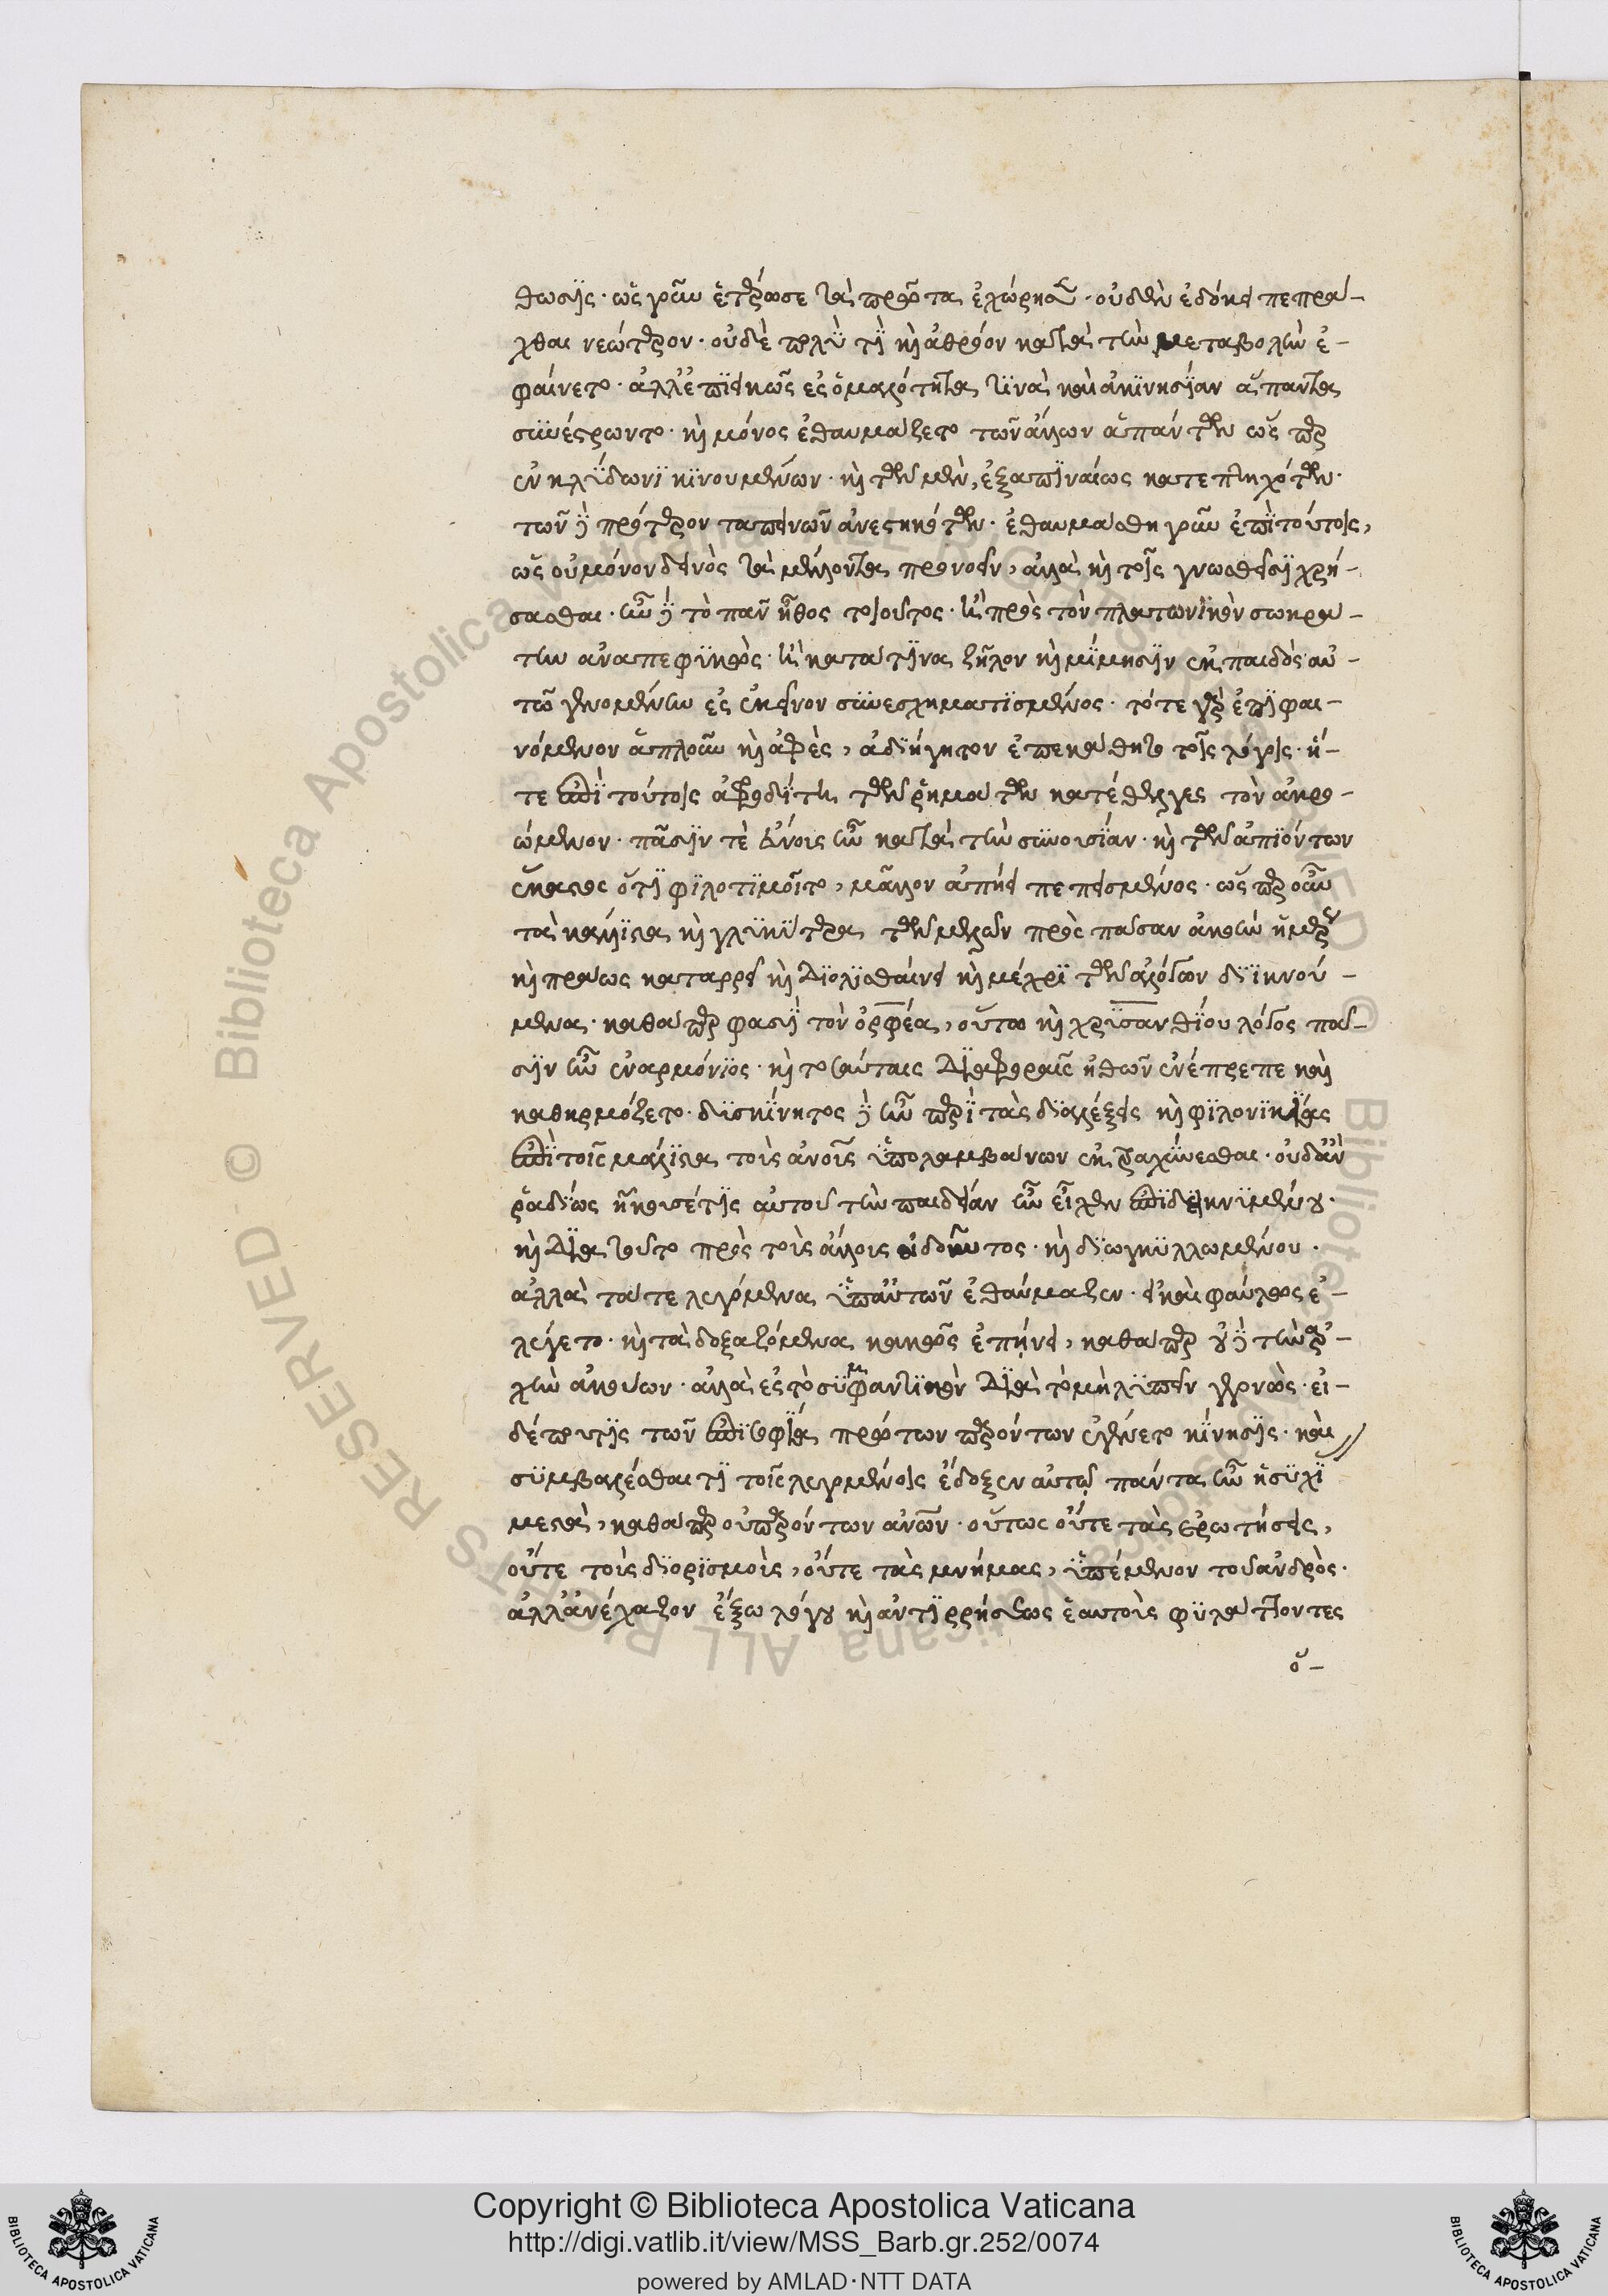 θωσις· ὡς γοῦν ἕτερωσε τὰ πρῶτα ἐχώρησεν· οὐδὲν ἐδόκει πεπρά-
χθαι νεώτερον· οὐδὲ πολὺ τὶ καὶ ἀθρόον κατὰ τὴν μεταβολὴν ἐ-
φαίνετο· ἀλλ' ἐπιεικῶς ἐς ὁμαλότητα τινὰ καὶ ἀκινησίαν ἅπαντα
συνέστρωντο· καὶ μόνος ἐθαυμάζετο τῶν ἄλλων ἁπάντων ὥσπερ
ἐν κλύδωνι κινουμένων· καὶ τῶν μὲν, ἐξαπιναίως κατεπτηχότων·
τῶν δὲ πρότερον ταπεινῶν ἀνεστηκότων· ἐθαυμάσθη γοῦν ἐπὶ τούτοις,
ὡς οὐ μόνον δεινὸς τὰ μέλλοντα προνοεῖν, ἀλλὰ καὶ τοῖς γνωσθεῖσι χρή-
σασθαι· ἦν δὲ τὸ πᾶν ἦθος τοιοῦτος· ἢ πρὸς τὸν πλατωνικὸν σωκρά-
την ἀναπεφυκὸς· ἢ κατά τινα ζῆλον καὶ μίμησιν ἐκ παιδὸς αὐ-
τῶ γενομένην ἐς ἐκεῖνον συνεσχηματισμένος· τό τε γὰρ ἐπιφαι-
νόμενον ἁπλοῦν καὶ ἀφελὲς, ἀδιήγητον ἐπεκάθητο τοῖς λόγοις· ἥ-
τε ἐπὶ τούτοις ἀφροδίτη τῶν ῥημάτων κατέθελγες τὸν ἀκρο-
ώμενον· πᾶσιν τὲ εὔνοις ἦν κατὰ τὴν συνουσίαν· καὶ τῶν ἀπιόντων
ἕκαστος ὅτι φιλοτιμοῖτο, μᾶλλον ἀπῄει πεπεισμένος· ὥσπερ οὖν
τὰ κάλλιστα καὶ γλυκύτερα τῶν μελῶν πρὸς πᾶσαν ἀκοὴν ἡμέρως
καὶ πράως καταρρεῖ καὶ διολισθαίνει καὶ μέχρι τῶν ἀλόγων διικνού-
μενα· καθάπερ φασὶ τὸν ὀρφέα, οὕτω καὶ χρυσανθίου λόγος πᾶ-
σιν ἦν ἐναρμόνιος· καὶ τοσαύταις διαφοραῖς ἠθῶν ἐνέπρεπε καὶ
καθηρμόζετο· δυσκίνητος δὲ ἦν περὶ τὰς διαλέξεις καὶ φιλονικίας
ἐπὶ τοῖς μάλιστα τοὺς ἀνοὺς ὑπολαμβάνων ἐκτραχύνεσθαι· οὐδ' ἂν
ῥαδίως ἤκουσέ τις αὐτοῦ τὴν παιδείαν ἣν εἶχεν ἐπιδεικνυμένου·
καὶ διὰ τοῦτο πρὸς τοὺς ἄλλους οἰδοῦντος· καὶ διωγκυλλωμένου·
ἀλλὰ τά τε λεγόμενα ὑπ' αὐτῶν ἐθαύμαζεν· εἰ καὶ φαύλως ἐ-
λέγετο· καὶ τὰ δοξαζόμενα κακῶς ἐπῄνει, καθάπερ οὐδὲ τὴν ἀρ-
χὴν ἀκούων· ἀλλὰ ἐς τὸ συμφαντικὸν διὰ τὸ μὴ λυπεῖν γεγονὼς· εἰ-
δέ που τις τῶν ἐπὶ σοφία πρώτων παρόντων ἐγένετο κίνησις· καὶ
συμβαλέσθαι τι τοῖς λεγομένοις ἔδοξεν αὐτῷ πάντα ἦν ἡσυχί
μεστὰ, καθάπερ οὐ παρόντων ἀνῶν· οὕτως οὔτε τὰς ἐρωτήσεις,
οὔτε τοὺς διορισμοὺς, οὔτε τὰς μνήμας, ὑπέμενον τοῦ ἀνδρὸς·
ἀλλ' ἀνέχαζον ἔξω λόγου καὶ ἀντιρρήσεως ἑαυτοὺς φυλάττοντες
ὅ-
Copyright © Biblioteca Apostolica Vaticana
http://digi.vatlib.it/view/MSS_Barb.gr.252/0074
powered by AMLAD·NTT DATA